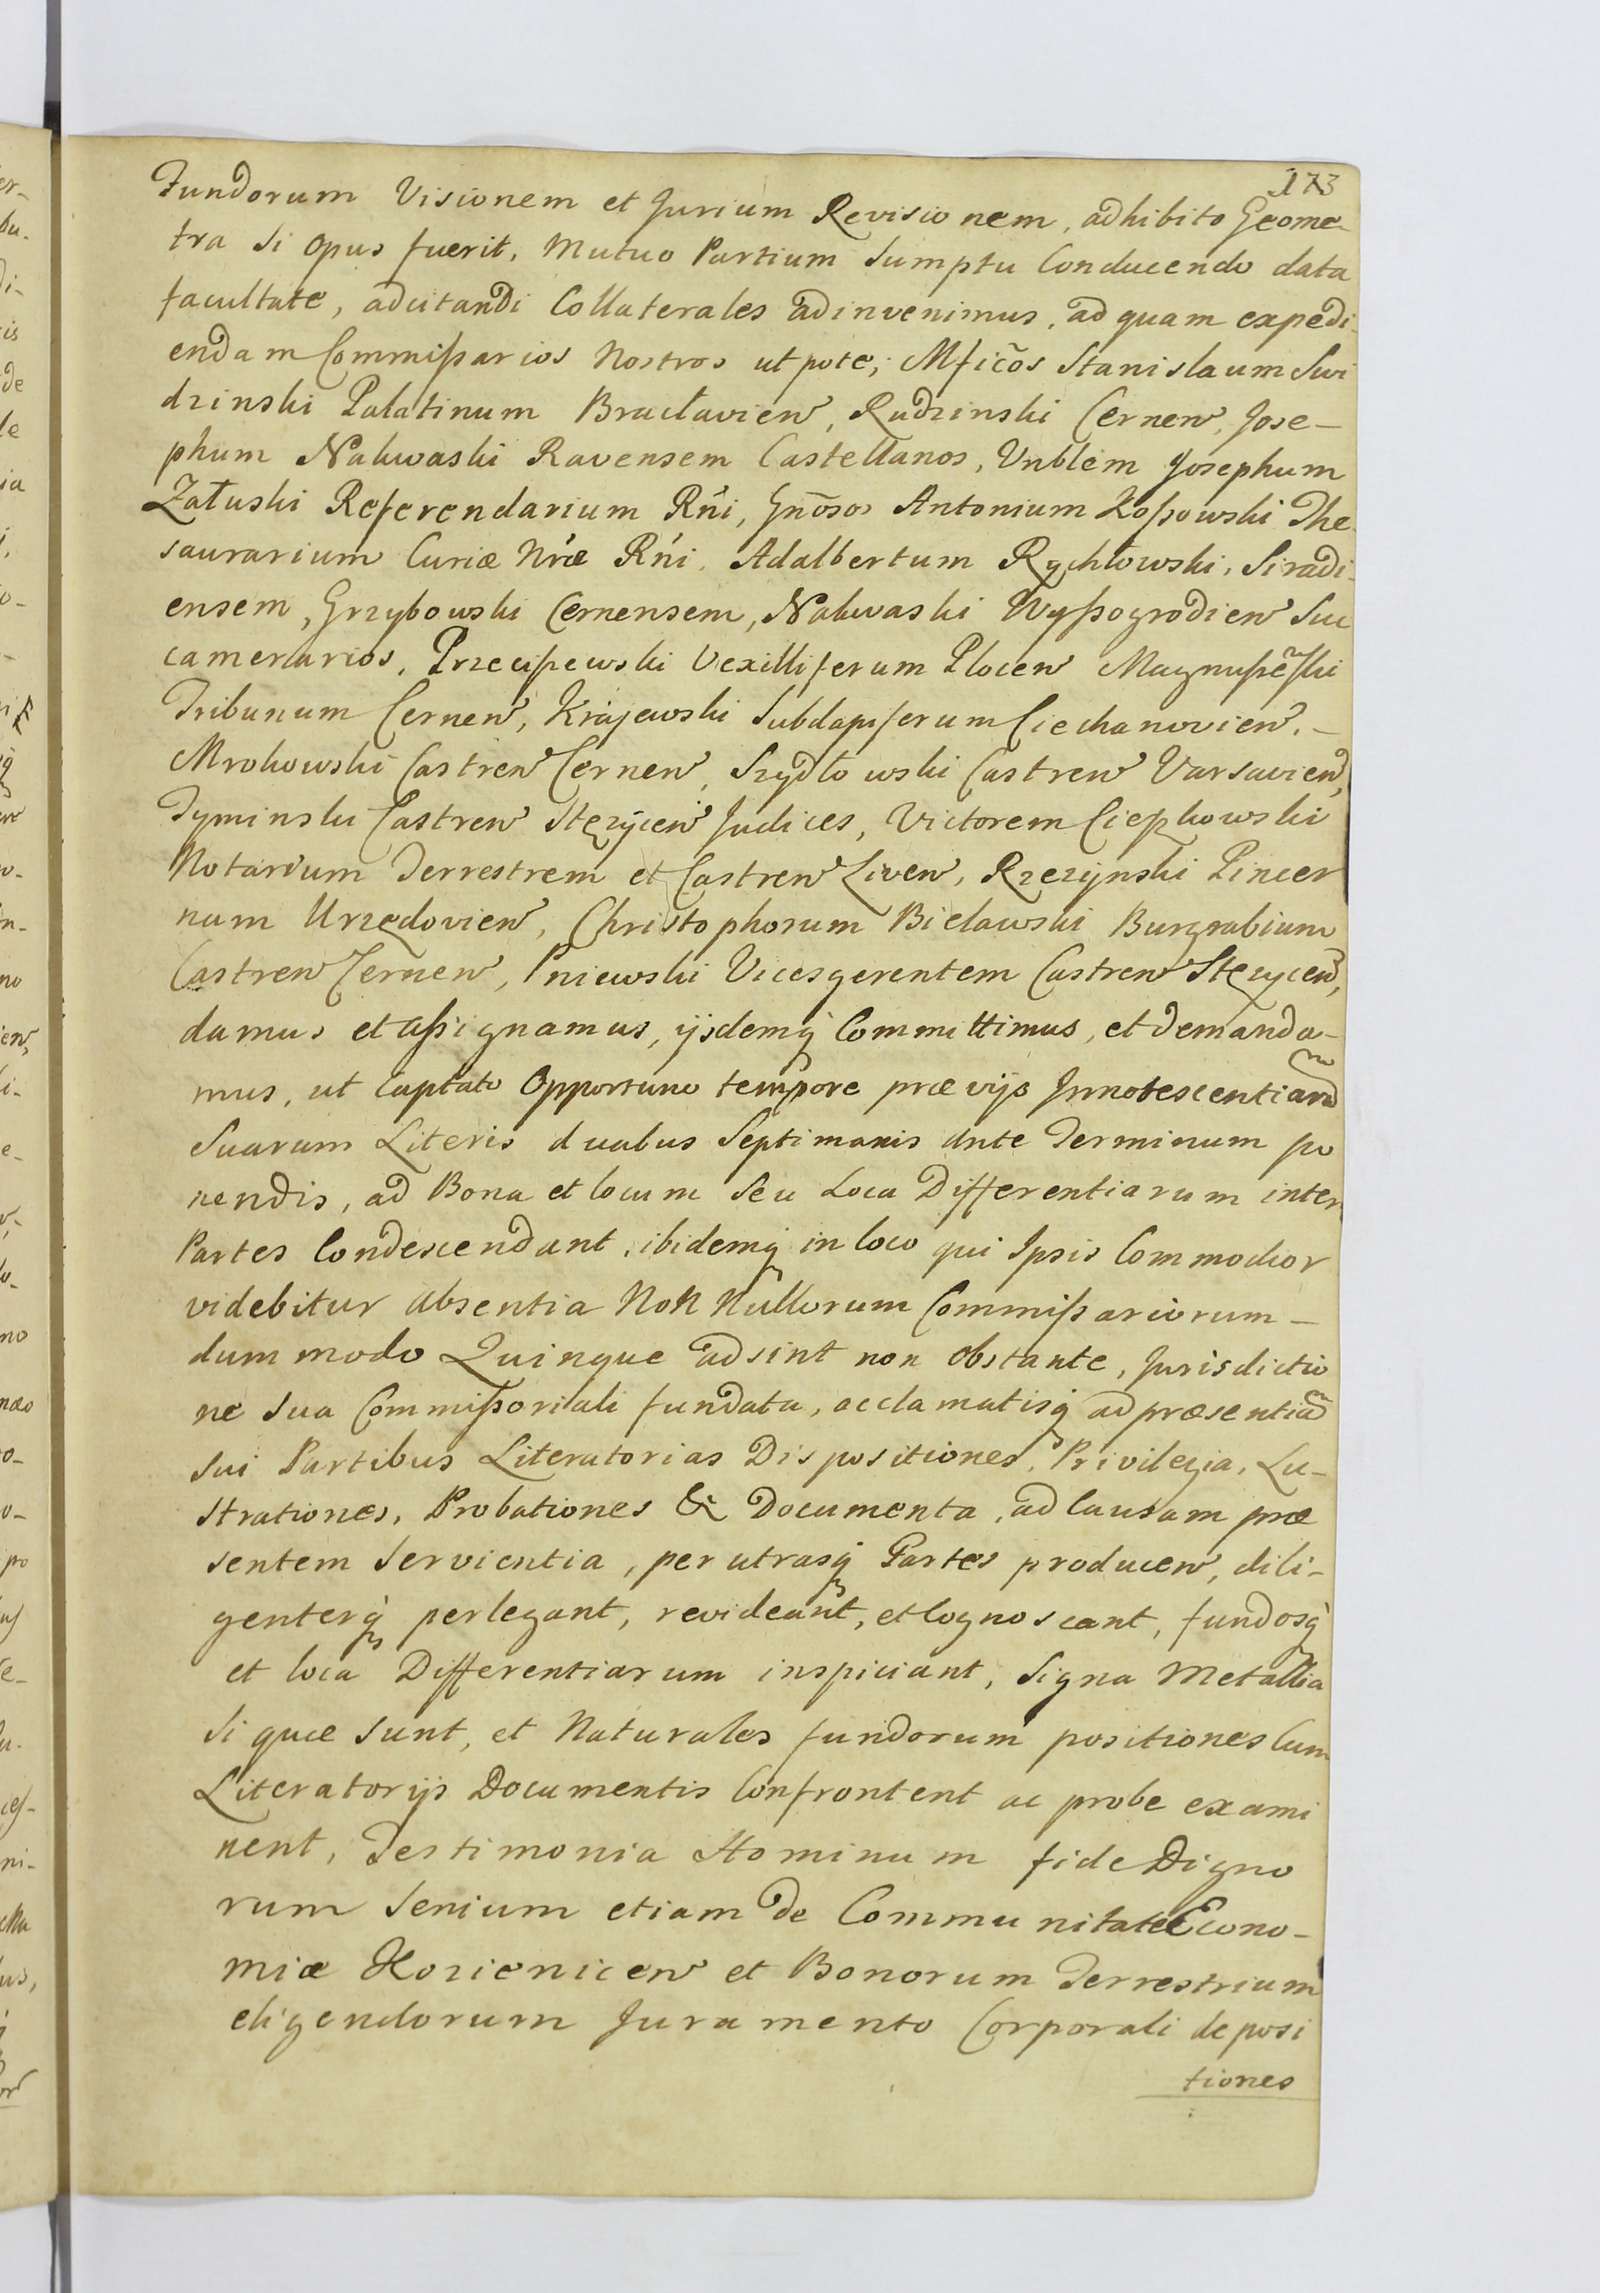 173
Fundorum Visionem et Jurium Revisionem, adhibito Geome-
tra Si Opus fuerit, Mutuo Partium Sumptu Conducendo data
facultate, adcitandi Collaterales adinvenimus, ad quam expedi-
endam Commißarios Nostros utpote; Mficõs Stanislaum Swi
dzinski Palatinum Bracłavien, Rudzinski Cernen, Jose-
phum Nakwaski Ravensem Castellanos, Vnblem Josephum
Załuski Referendarium Rñi, Gnõsos Antonium Koßowski The
saurarium Curiæ Nræ Rñi, Adalbertum Rychłowski, Siradi-
ensem, Grzybowski Cernensem, Nakwaski Wyßogrodien Suc
camerarios, Przeciszewski Vexilliferum Plocen Magnußẽski
Tribunum Cernen, Krajewski Subdapiferum Ciechanovien, -
Mrokowski Castren Cernen, Szydłowski Castren Varsavien,
Tyminski Castren Stezycen Judices, Victorem Cieszkowski
Notarium Terrestrem et Castren Liven, Rzezynski Pincer
nam Urzędovien, Christophorum Bielawski Burgrabium
Castren Cernen, Pniewski Vicesgerentem Castren Stezycen,
damus et aßignamus, ijsdemq Committimus, et demanda-
mus, ut captato Opportuno tempore prævijs Innotescentiarũ
Suarum Literis duabus Septimanis ante Terminum po
nendis, ad Bona et locum Seu Loca Differentiarum inter
Partes Condescendant, ibidemq in loco qui Ipsis Commodior
videbitur absentia Non Nullorum Commißariorum -
dum modo Quinque adsint non obstante, Jurisdictio
ne Sua Commißoriali fundata, acclamatisq ad præsentiã
Sui Partibus Literatorias Dispositiones, Privilegia, Lu-
strationes, Probationes & Documenta, ad Causam præ
sentem Servientia, per utrasq Partes producen, dili-
genterq perlegant, revideant, et Cognoscant, fundosq
et loca Differentiarum inspiciant, Signa Metallia
Si quæ Sunt, et Naturales fundorum positiones Cum
Literatorijs Documentis Confrontent ac probe exami
nent, Testimonia Hominum fide Digno
rum Senium etiam de Communitate Econo-
miæ Kozienicen et Bonorum Terrestrium
eligendorum Juramento Corporali deposi
tiones